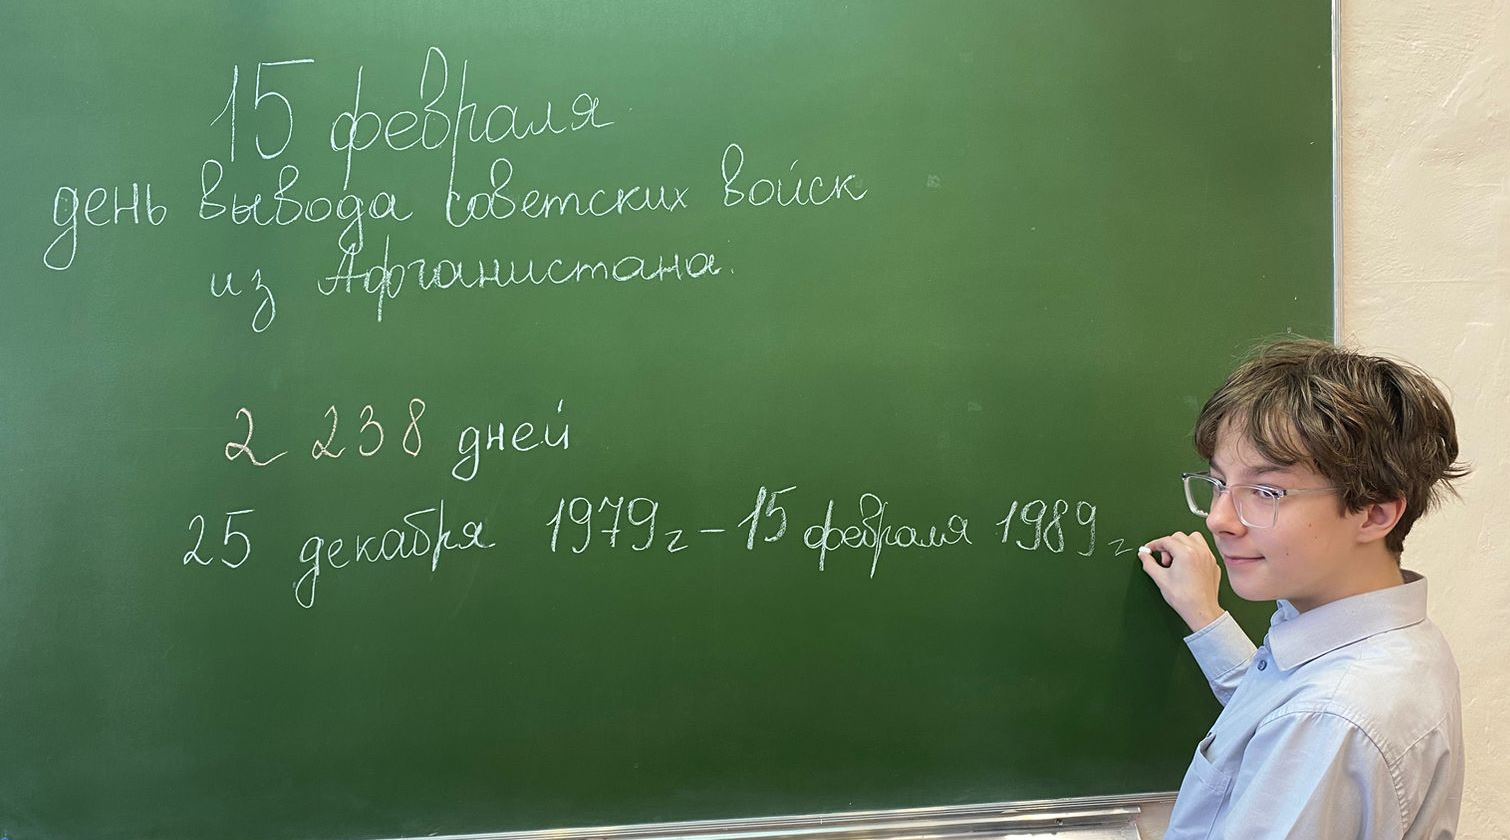 15 февраля
день вывода советских войск
из Афганистана.
2 238 дней
25 декабря 1979 г – 15 февраля 1989 г